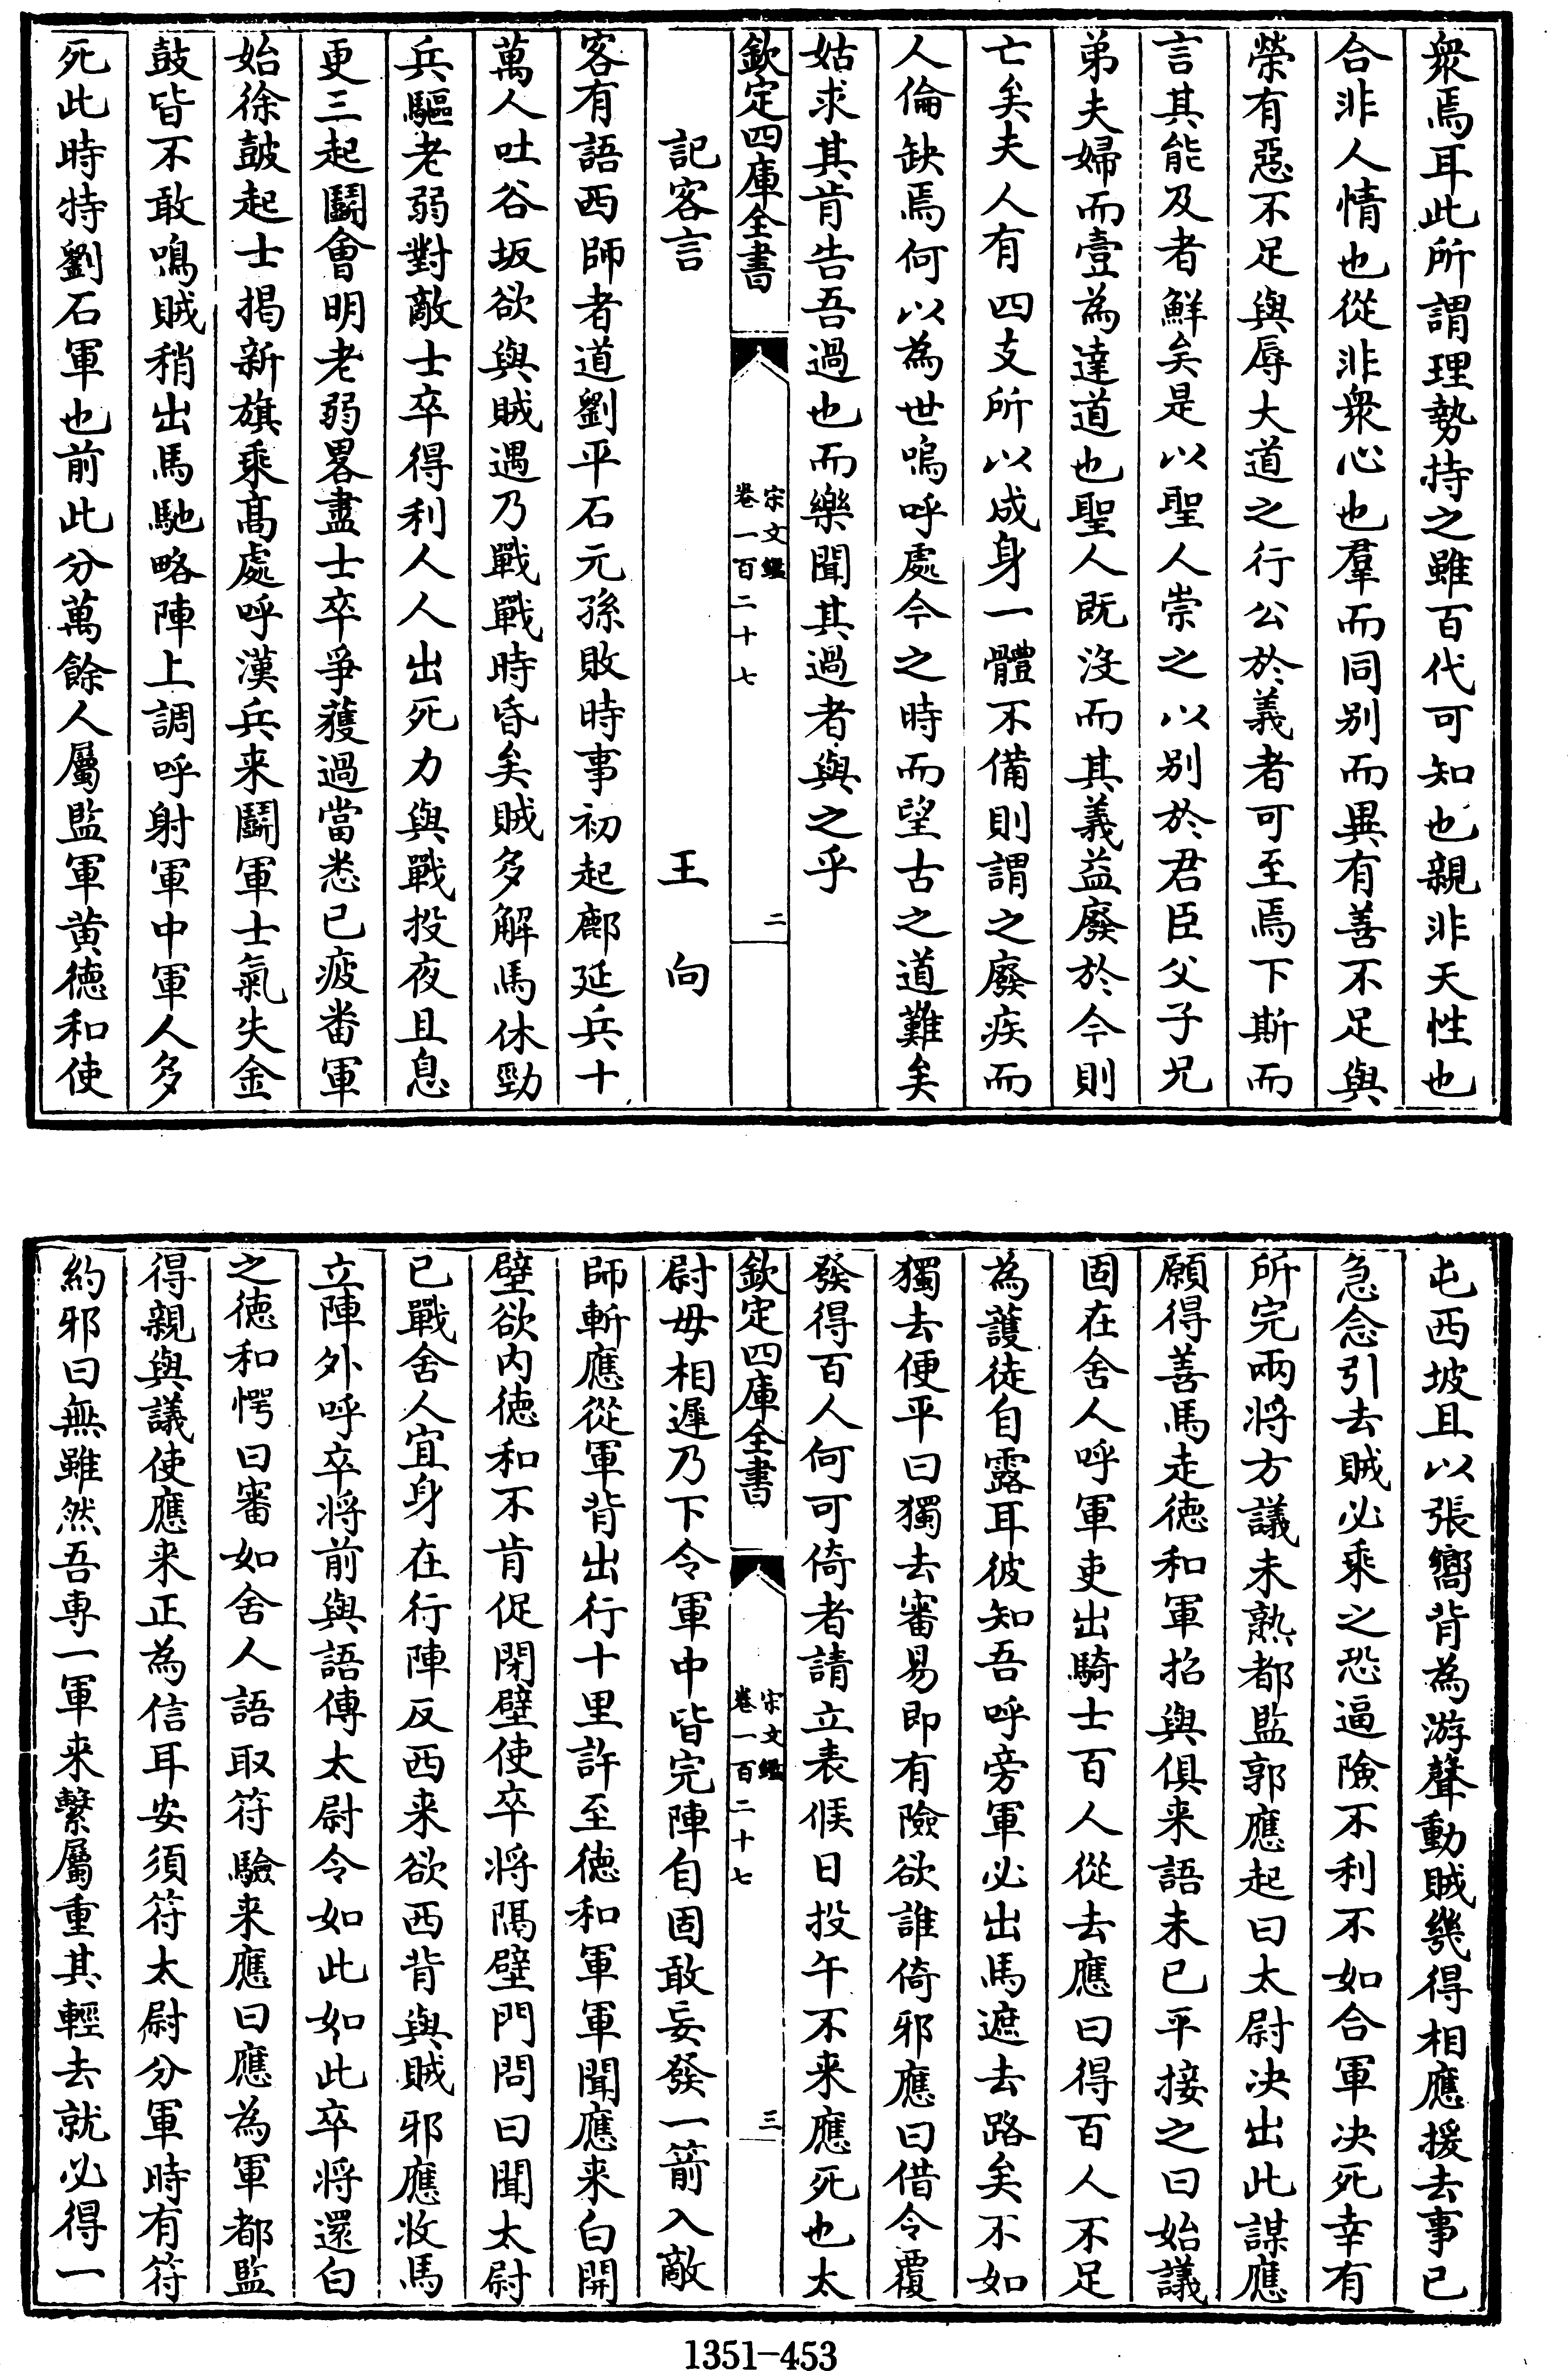 衆焉耳此所謂理勢持之雖百代可知也親非天性也
合非人情也從非衆心也羣而同别而異有善不足與
榮有惡不足與辱大道之行公於義者可至焉下斯而
言其能及者鮮矣是以聖人崇之以别於君臣父子兄
弟夫婦而壹為達道也聖人既沒而其義益廢於今則
亡矣夫人有四支所以成身一體不備則謂之廢疾而
人倫缺焉何以為世嗚呼處今之時而望古之道難矣
姑求其肯告吾過也而樂聞其過者與之乎
欽定四庫全書
宋文鑑
卷一百二十七
二
記客言
王向
客有語西師者道劉平石元孫敗時事初起鄜延兵十
萬人吐谷坂欲與賊遇乃戰戰時昏矣賊多解馬休勁
兵驅老弱對敵士卒得利人人出死力與戰投夜且息
更三起鬭會明老弱畧盡士卒爭獲過當悉已疲畨軍
始徐鼓起士揭新旗乘髙處呼漢兵来鬭軍士氣失金
鼓皆不敢鳴賊稍出馬馳略陣上調呼射軍中軍人多
死此時特劉石軍也前此分萬餘人屬監軍黄德和使
屯西坡且以張嚮背為游聲動賊幾得相應援去事已
急念引去賊必乘之恐逼險不利不如合軍决死幸有
所完兩将方議未熟都監郭應起曰太尉决出此謀應
願得善馬走德和軍招與俱来語未已平接之曰始議
固在舍人呼軍吏出騎士百人從去應曰得百人不足
為護徒自露耳彼知吾呼旁軍必出馬遮去路矣不如
獨去便平曰獨去審易即有險欲誰倚邪應曰借令覆
發得百人何可倚者請立表候日投午不来應死也太
欽定四庫全書
宋文鑑
卷一百二十七
三
尉毋相遲乃下令軍中皆完陣自固敢妄發一箭入敵
師斬應從軍背出行十里許至德和軍軍聞應来白開
壁欲内德和不肯促閉壁使卒将隔壁門問曰聞太尉
已戰舍人宜身在行陣反西来欲西背與賊邪應收馬
立陣外呼卒将前與語傳太尉令如此如此卒将還白
之德和愕曰審如舍人語取符驗来應曰應為軍都監
得親與議使應来正為信耳安須符太尉分軍時有符
約邪曰無雖然吾專一軍来繫屬重其輕去就必得一
1351-453